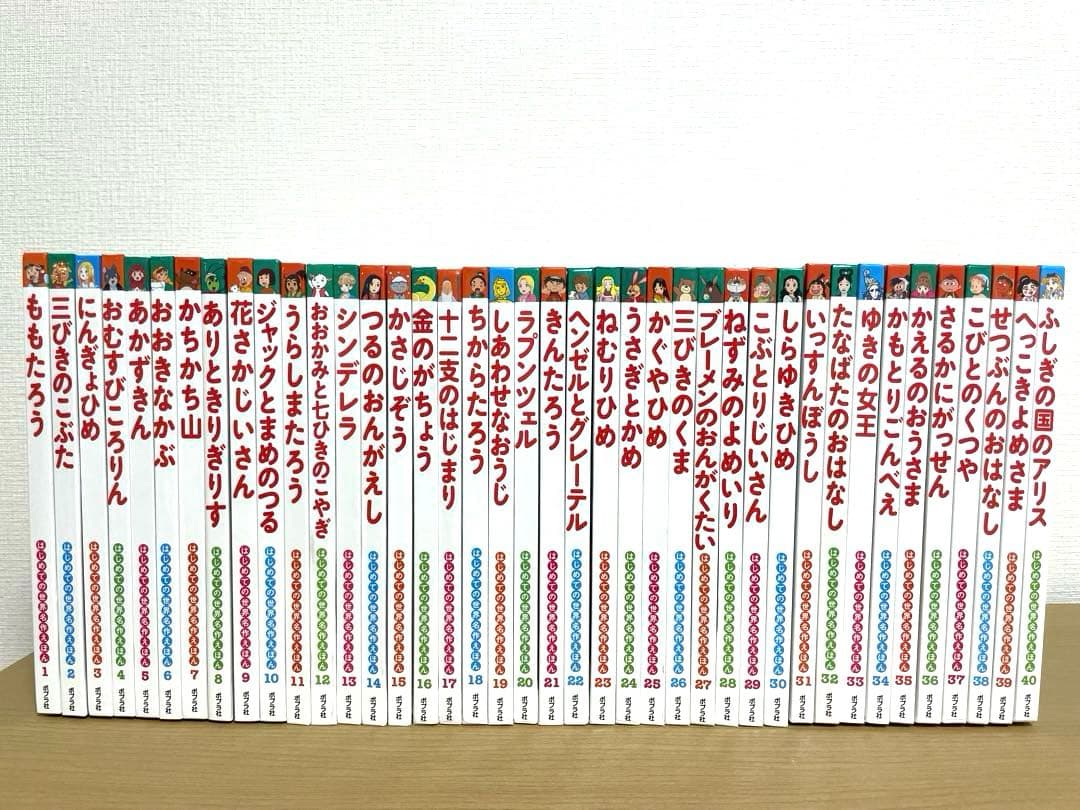 ももたろう
はじめての世界名作えほん
1
ポプラ社
三びきのこぶた
はじめての世界名作えほん
2
ポプラ社
にんぎょひめ
はじめての世界名作えほん
3
ポプラ社
おむすびころりん
はじめての世界名作えほん
4
ポプラ社
あかずきん
はじめての世界名作えほん
5
ポプラ社
おおきなかぶ
はじめての世界名作えほん
6
ポプラ社
かちかち山
はじめての世界名作えほん
7
ポプラ社
ありときりぎりす
はじめての世界名作えほん
8
ポプラ社
花さかじいさん
はじめての世界名作えほん
9
ポプラ社
ジャックとまめのつる
はじめての世界名作えほん
10
ポプラ社
うらしまたろう
はじめての世界名作えほん
11
ポプラ社
おおかみと七ひきのこやぎ
はじめての世界名作えほん
12
ポプラ社
シンデレラ
はじめての世界名作えほん
13
ポプラ社
つるのおんがえし
はじめての世界名作えほん
14
ポプラ社
かさじぞう
はじめての世界名作えほん
15
ポプラ社
金のがちょう
はじめての世界名作えほん
16
ポプラ社
十二支のはじまり
はじめての世界名作えほん
17
ポプラ社
ちからたろう
はじめての世界名作えほん
18
ポプラ社
しあわせなおうじ
はじめての世界名作えほん
19
ポプラ社
ラプンツェル
はじめての世界名作えほん
20
ポプラ社
きんたろう
はじめての世界名作えほん
21
ポプラ社
ヘンゼルとグレーテル
はじめての世界名作えほん
22
ポプラ社
ねむりひめ
はじめての世界名作えほん
23
ポプラ社
うさぎとかめ
はじめての世界名作えほん
24
ポプラ社
かぐやひめ
はじめての世界名作えほん
25
ポプラ社
三びきのくま
はじめての世界名作えほん
26
ポプラ社
ブレーメンのおんがくたい
はじめての世界名作えほん
27
ポプラ社
ねずみのよめいり
はじめての世界名作えほん
28
ポプラ社
こぶとりじいさん
はじめての世界名作えほん
29
ポプラ社
しらゆきひめ
はじめての世界名作えほん
30
ポプラ社
いっすんぼうし
はじめての世界名作えほん
31
ポプラ社
たなばたのおはなし
はじめての世界名作えほん
32
ポプラ社
ゆきの女王
はじめての世界名作えほん
33
ポプラ社
かもとりごんべえ
はじめての世界名作えほん
34
ポプラ社
かえるのおうさま
はじめての世界名作えほん
35
ポプラ社
さるかにがっせん
はじめての世界名作えほん
36
ポプラ社
こびとのくつや
はじめての世界名作えほん
37
ポプラ社
せつぶんのおはなし
はじめての世界名作えほん
38
ポプラ社
へっこきよめさま
はじめての世界名作えほん
39
ポプラ社
ふしぎの国のアリス
はじめての世界名作えほん
40
ポプラ社